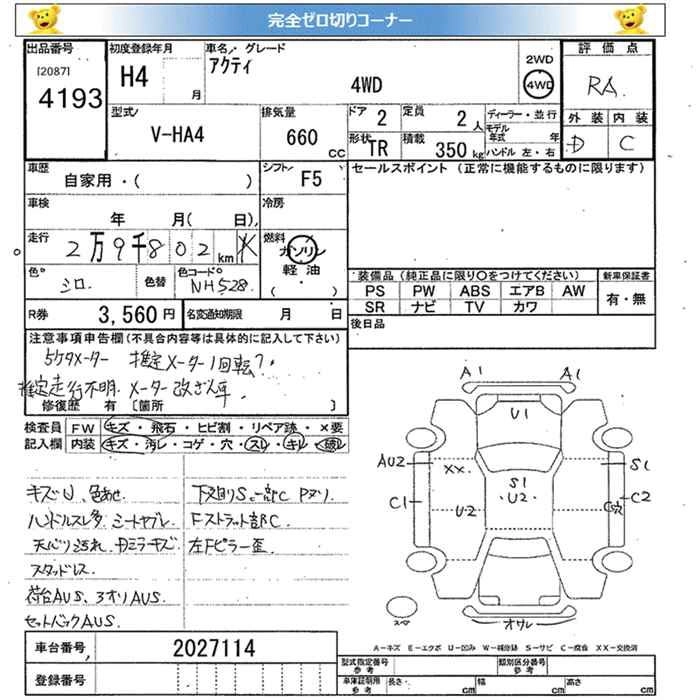 完全ゼロ切りコーナー
出品番号 初度登録年月 車名/グレード 評価点
アクティ 2WD
[2087] H4 4WD 4WD RA
4193 月
型式/ 排気量 ドア 2 定員 2人 ディーラー・並行 外装 内装
V-HA4 660 CC モデル年式 年
形状 TR 積載 350kg ハンドル 左・右 D C
車歴 シフト/ F5 セールスポイント (正常に機能するものに限ります)
自家用・( )
車検 冷房
年 月( 日)
走行 2万9千802 km 燃料 ガソリン
軽油
( )
色º シロ. 色替 色コードº NH528. 装備品(純正品に限り○をつけてください) 新車保証書
PS PW ABS エアB AW 有・無
R券 3,560円 名変通知期限 月 日 SR ナビ TV カワ
注意事項申告欄(不具合内容等は具体的に記入して下さい) 後日品
5ケタメーター 推定メーター1回転?.
推定走行不明. メーター改ざん車.
修復歴 有 [箇所 ]
検査員 FW キズ・飛石・ヒビ割・リペア跡・×要
記入欄 内装 キズ・汚レ・コゲ・穴・スレ・キレ・破レ
キズU、色あせ 下廻りS.一部C Pヌリ
ハンドルスレ多 シートヤブレ. Fストラット部C.
天バリ汚れ. 左Fピラー歪
スタッドレス
荷台AUS、3オリAUS.
セットバックAUS.
A1 A1
U1
AU2 XX. S1 S1
U2
C1 U2 C穴 C2
スペ オサレ
A−キズ E−エクボ U−凹み W−補修跡 S−サビ C−腐食 XX−交換済
車台番号 2027114 型式指定番号 参考 類別区分番号 参考
登録番号 車庫証明用 参考 長さ・ cm 幅 cm 高さ cm